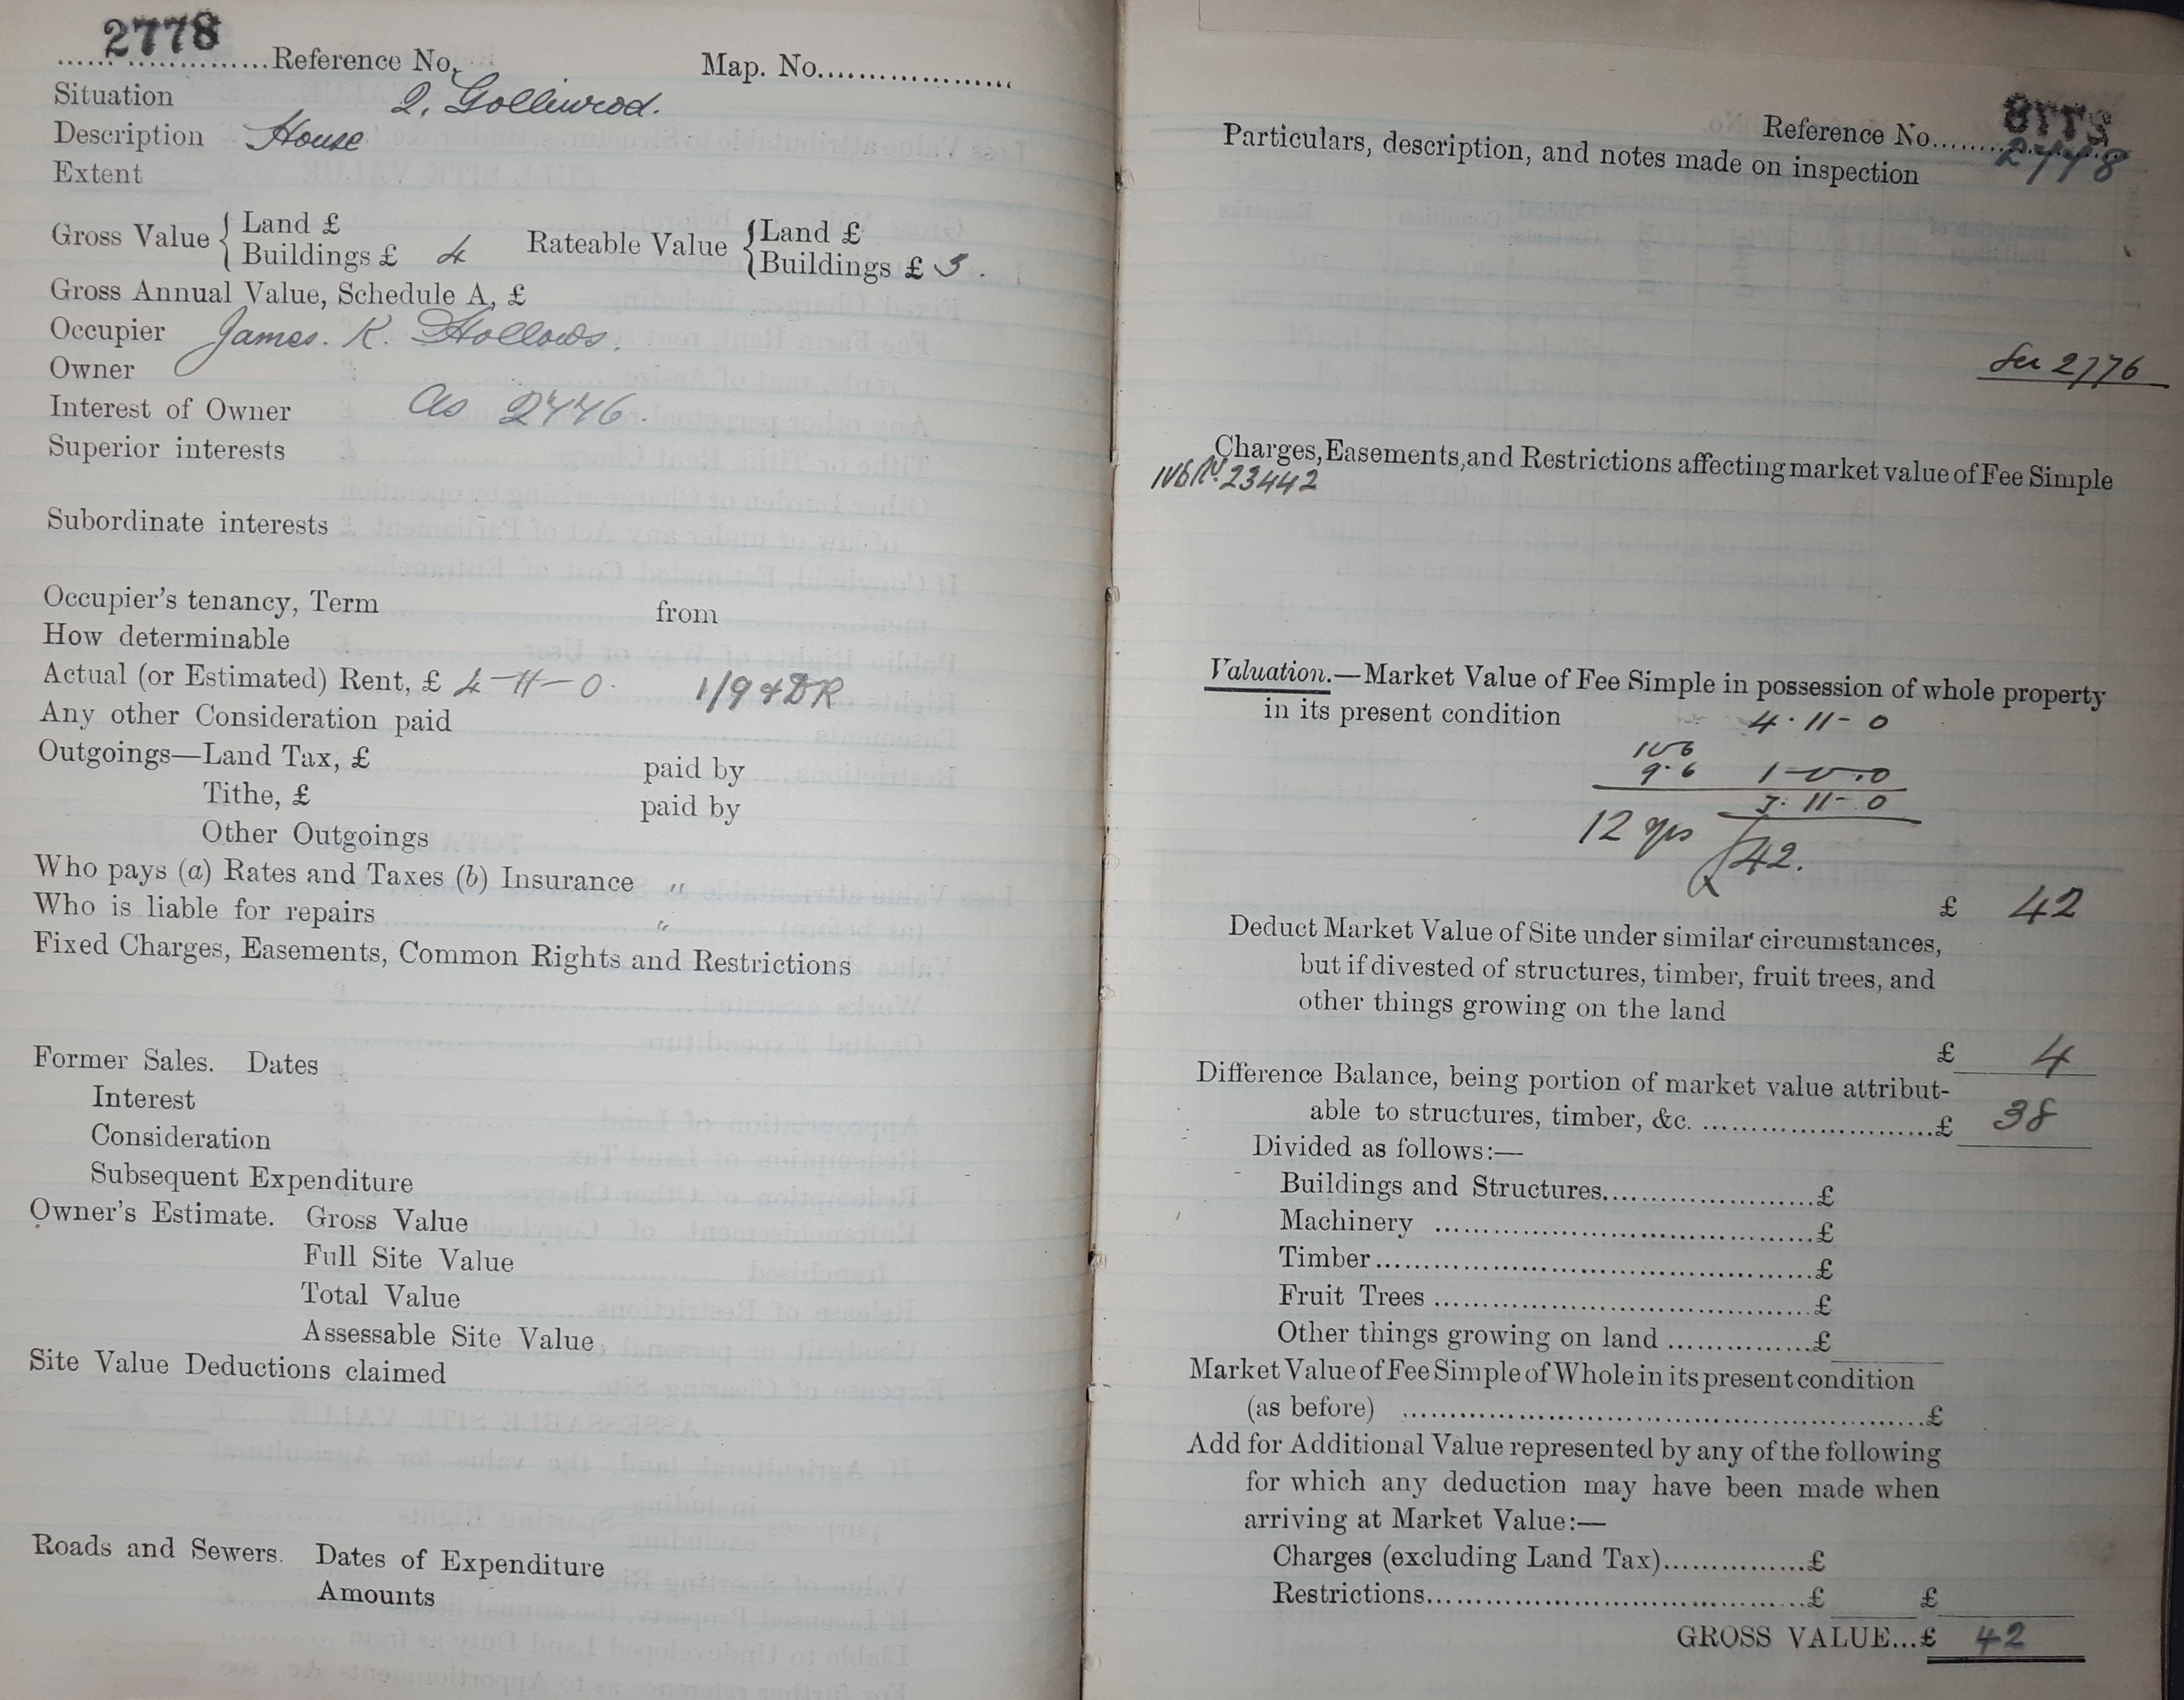 2778
Reference No.
Map. No.
Situation 2, Gollinrod.
Description House
Extent
Gross Value { Land £
Buildings £ 4
Rateable Value { Land £
Buildings £ 3.
Gross Annual Value, Schedule A, £
Occupier James. K. Hollows.
Owner
Interest of Owner As 2776.
Superior interests
Subordinate interests
Occupier's tenancy, Term from
How determinable
Actual (or Estimated) Rent, £ 4-11-0. 1/9 & DR
Any other Consideration paid
Outgoings—Land Tax, £ paid by
Tithe, £ paid by
Other Outgoings
Who pays (a) Rates and Taxes (b) Insurance "
Who is liable for repairs "
Fixed Charges, Easements, Common Rights and Restrictions
Former Sales. Dates
Interest
Consideration
Subsequent Expenditure
Owner's Estimate. Gross Value
Full Site Value
Total Value
Assessable Site Value
Site Value Deductions claimed
Roads and Sewers. Dates of Expenditure
Amounts
Reference No. 2778
Particulars, description, and notes made on inspection
See 2776
Charges, Easements, and Restrictions affecting market value of Fee Simple
23442
Valuation.—Market Value of Fee Simple in possession of whole property
in its present condition
4-11-0
10 6
9.6 1-0-0
3-11-0
12 yrs £42.
£ 42
Deduct Market Value of Site under similar circumstances,
but if divested of structures, timber, fruit trees, and
other things growing on the land
£ 4
Difference Balance, being portion of market value attribut-
able to structures, timber, &c. £ 38
Divided as follows:—
Buildings and Structures £
Machinery £
Timber £
Fruit Trees £
Other things growing on land £
Market Value of Fee Simple of Whole in its present condition
(as before) £
Add for Additional Value represented by any of the following
for which any deduction may have been made when
arriving at Market Value:—
Charges (excluding Land Tax) £
Restrictions £ £
GROSS VALUE...£ 42